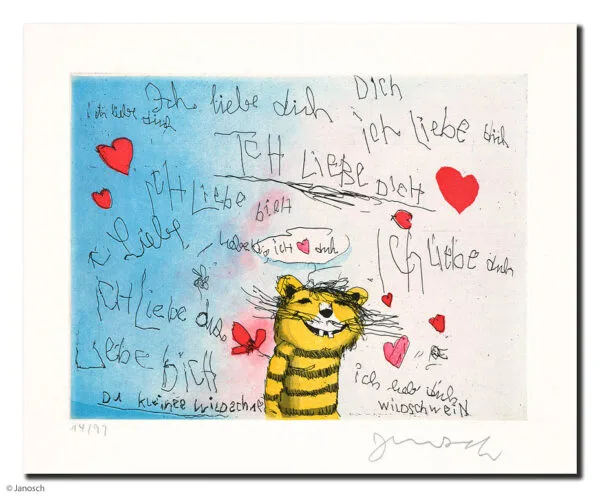 Dich
Ich liebe dich
Ich liebe dich
ich liebe dich
ICH LIEBE DICH
ICH LIEBE
dich
Liebe
ich ♥ dich
ICH liebe dich
ICH Liebe dich
Liebe DICH
DU kleines
ich lieb dich
WILDSCHWEIN
14/99
Janosch
© Janosch